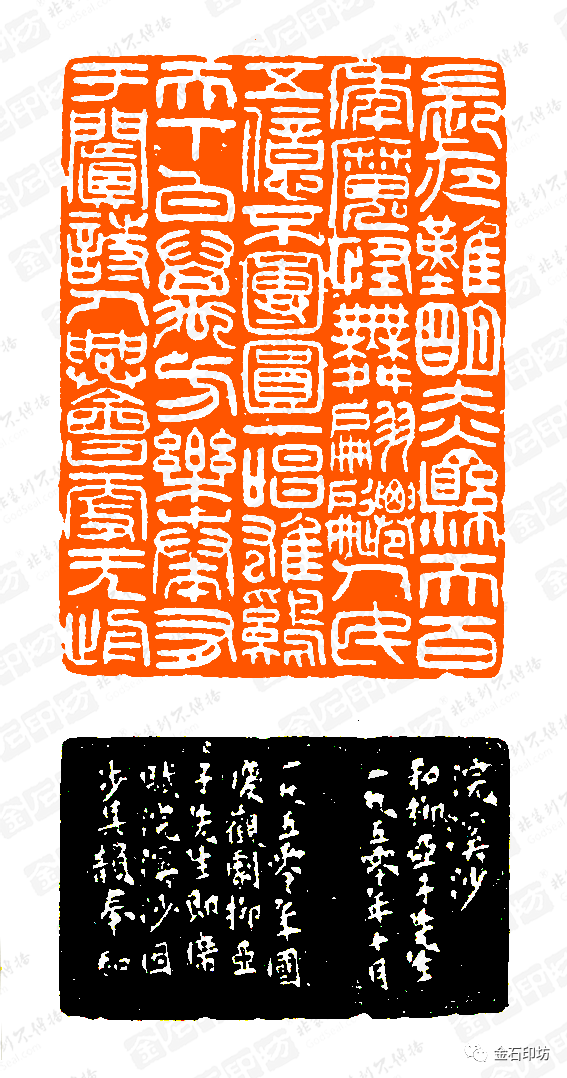 長夜難明赤縣天百
年魔怪舞翩躚人民
五億不團圓一唱雄鷄
天下白萬方樂奏有
于闐詩人興會更无前
浣溪沙
和柳亞子先生
一九五零年十月
一九五零年國
慶觀劇柳亞
子先生即席
賦浣溪沙因
步其韻奉和
金石印坊